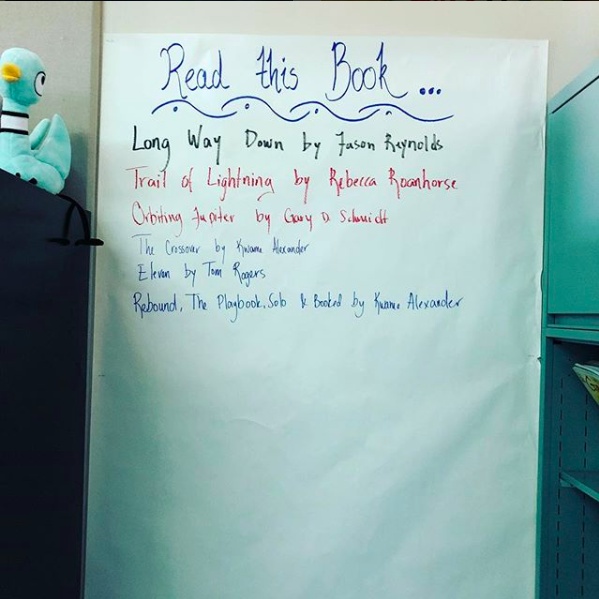 Read this Book...
Long Way Down by Jason Reynolds
Trail of Lightning by Rebecca Roanhorse
Orbiting Jupiter by Gary D. Schmidt
The Crossover by Kwame Alexander
Eleven by Tom Rogers
Rebound, The Playbook, Solo & Booked by Kwame Alexander